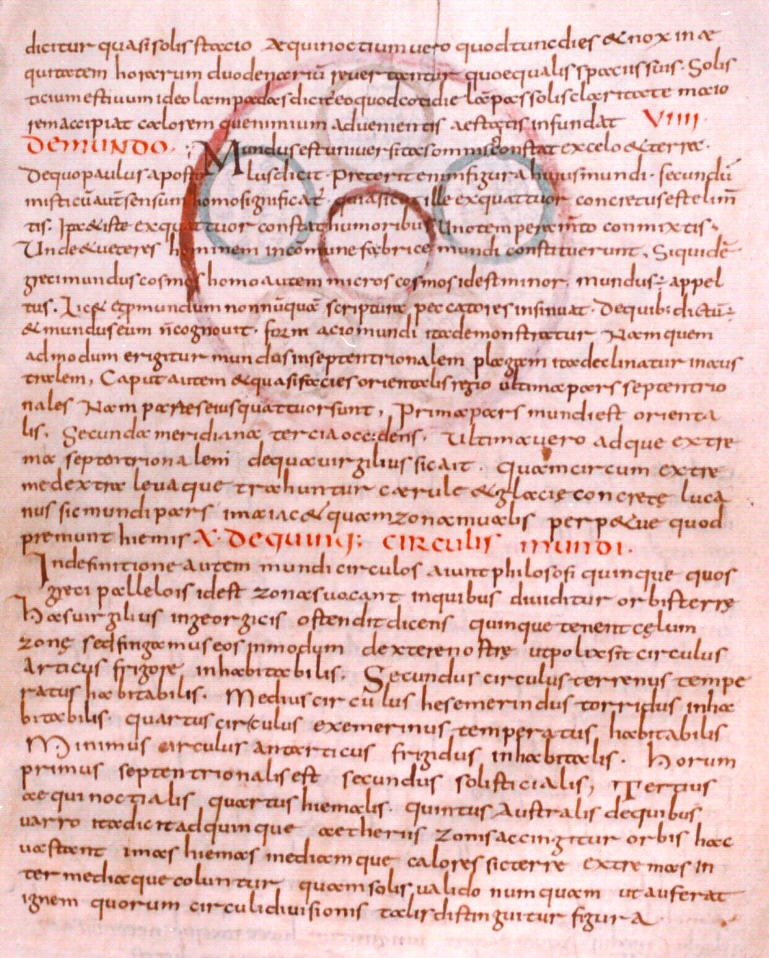 dicitur quasi solis statio Aequinoctium vero quod tunc dies & nox in ae
quitatem horarum duodenariū revertantur quoequalis spatiis suis. Solis
ticium estivum ideo lampadas dicit eo quod cotidie lāpas solis claritate maio
rem accipiat calorem que nimium advenientis aestatis infundat VIIII
DE MUNDO. Mundus est universitas omnis constat ex celo & terrae.
De quo paulus apost lus dicit. Preterit enim figura huius mundi. secundū
misticū aut sensum homo significat. quia sicut ille ex quattuor concretus est elim̄
tis. Ita & iste ex quattuor constat humoribus Uno temperamto conmixtis.
Unde & veteres hominem in comune fabrice mundi constituerunt. Siquidē
greci mundus cosmos homo autem micros cosmos id est minor mundus: appel
tus. Lic& mundum nonnūquā scriptura peccatores insinuat. De quib: dictū:
& mundus eum ñ cognovit. form acio mundi ita demonstratur Nam quem
admodum erigitur mundus in septentrionalem plagam ita declinatur in aus
tralem, Caput autem & quasi facies orientalis regio ultima pars septentrio
nales Nam partes eius quattuor sunt, Prima pars mundi est orienta
lis. Secunda meridiana tercia occidens. Ultima vero adque extre
ma septentrionalem de qua virgilius sic ait. quam circum extre
me dextra levaque trahuntur caerule & glacie concrete luca
nus sic mundi pars ima iac& quam zona nivalis perpetue quod
premunt hiemis X. DE QUINQ: CIRCULIS MUNDI.
In definitione autem mundi circulos aiunt philosofi quinque quos
greci pallelois id est zonas vocant in quibus dividitur orbis terre
has virgilius in georgicis ostendit dicens quinque tenent celum
zone sed fingamus eos in modum dextere nostre ut polix sit circulus
Articus frigore inhabitabilis. Secundus circulus terrenus tempe
ratus habitabilis. Medius circulus hesemerindus torridus inha
bitabilis. quartus circulus exemerinus temperatus, habitabilis
Minimus circulus antarticus frigidus inhabitalis. Horum
primus septentrionalis est secundus solisticialis, Tertius
aequinoctialis quartus hiemalis. quintus Australis de quibus
varro ita dicit ad quinque aetheriis zonis accingitur orbis hac
vastant imas hiemas mediamque calores sic terre extremas in
ter mediaeque coluntur quam solis valido numquam ut auferat
ignem quorum circuli divisionis talis distinguitur figura